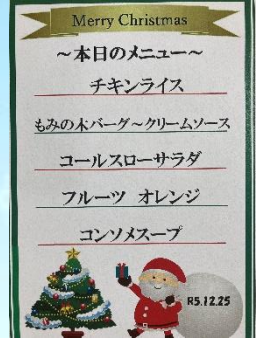 Merry Christmas
～本日のメニュー～
チキンライス
もみの木バーグ～クリームソース
コールスローサラダ
フルーツ オレンジ
コンソメスープ
R5.12.25